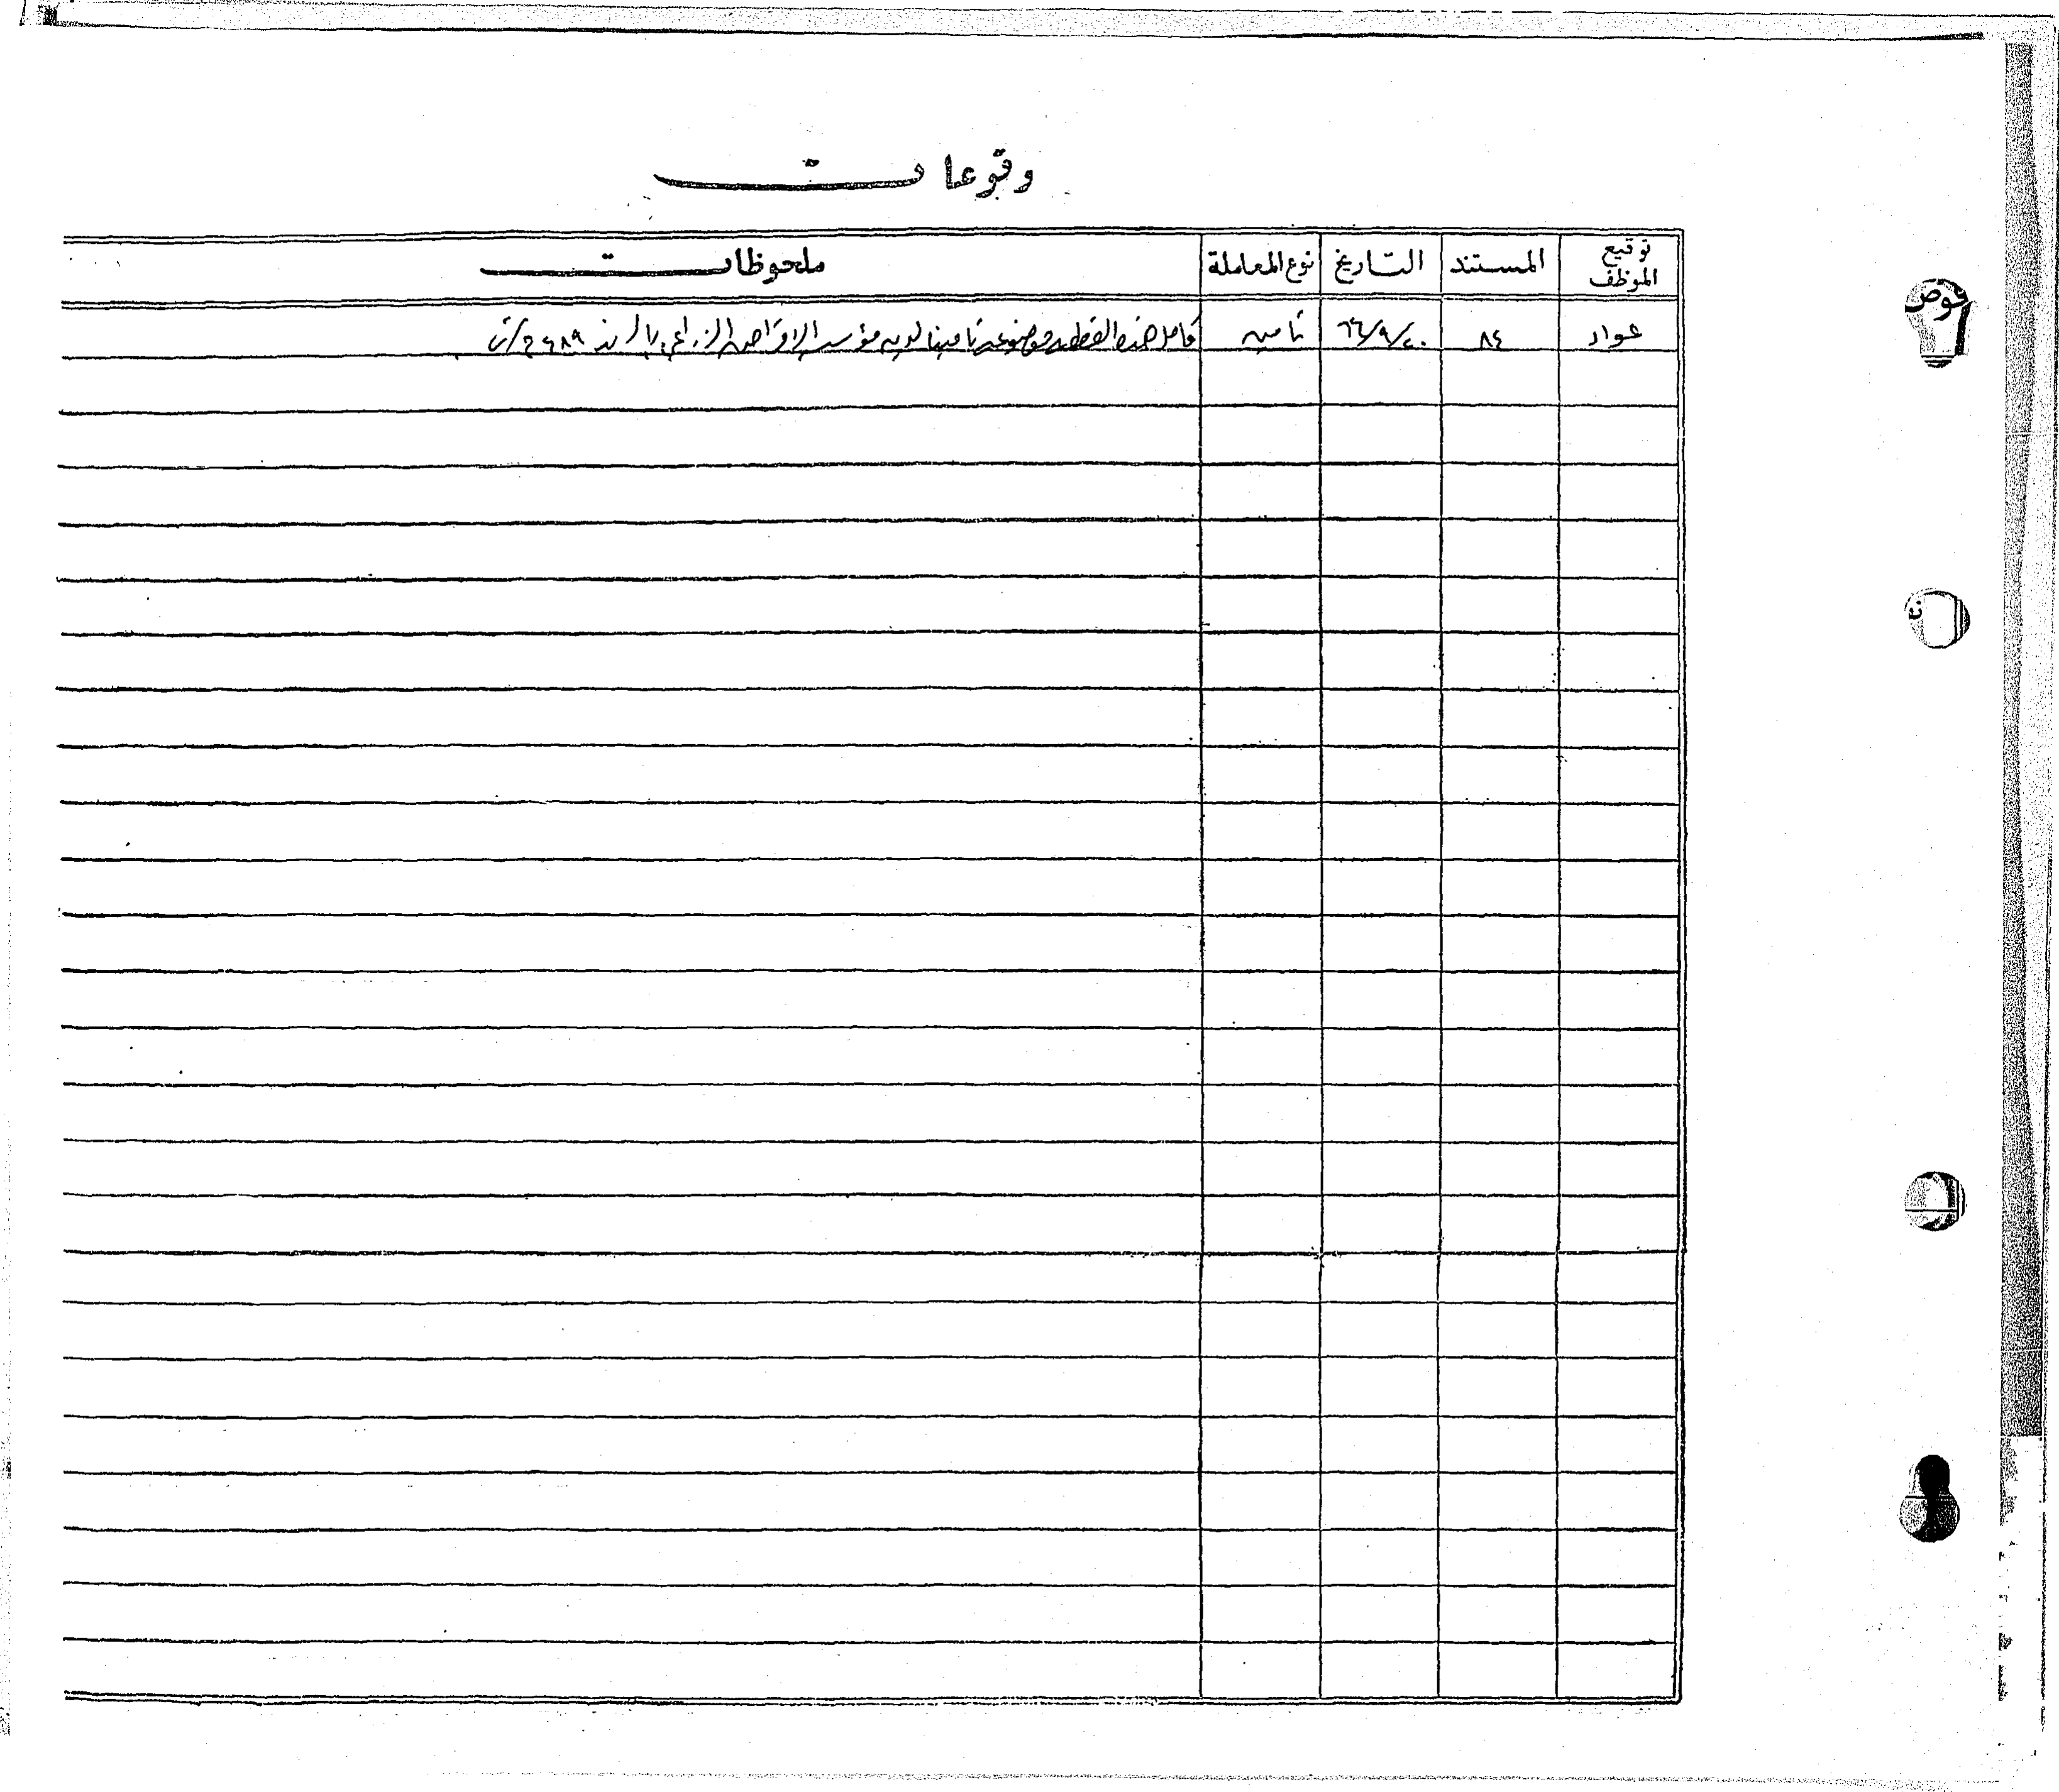 وقوعات
توقيع الموظف المستند التاريخ نوع المعاملة ملحوظات
عواد ٨٤ ٦٦/٩/٢٠ تامين كامل هذه القطعه موضوعه تامينا لديه مؤسسه الاقراض الزراعي بالسند